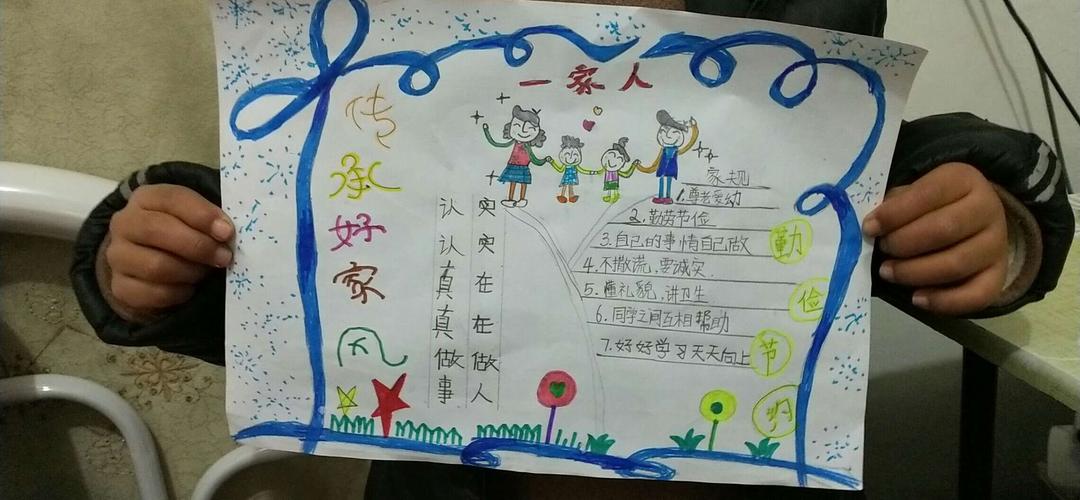 一家人
传承好家风
认认真真做事
实实在在做人
家规
1.尊老爱幼
2.勤劳节俭
3.自己的事情自己做
4.不撒谎,要诚实.
5.懂礼貌,讲卫生
6.同学之间互相帮助
7.好好学习天天向上
勤俭节约